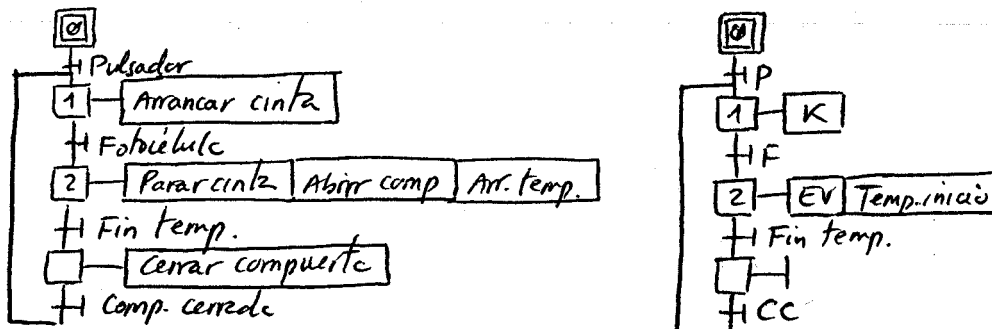 0
Pulsador
1 Arrancar cinta
Fotocélula
2 Parar cinta Abrir comp Arr. temp.
Fin temp.
Cerrar compuerta
Comp. cerrada
0
P
1 K
F
2 EV Temp. inicio
Fin temp.
CC